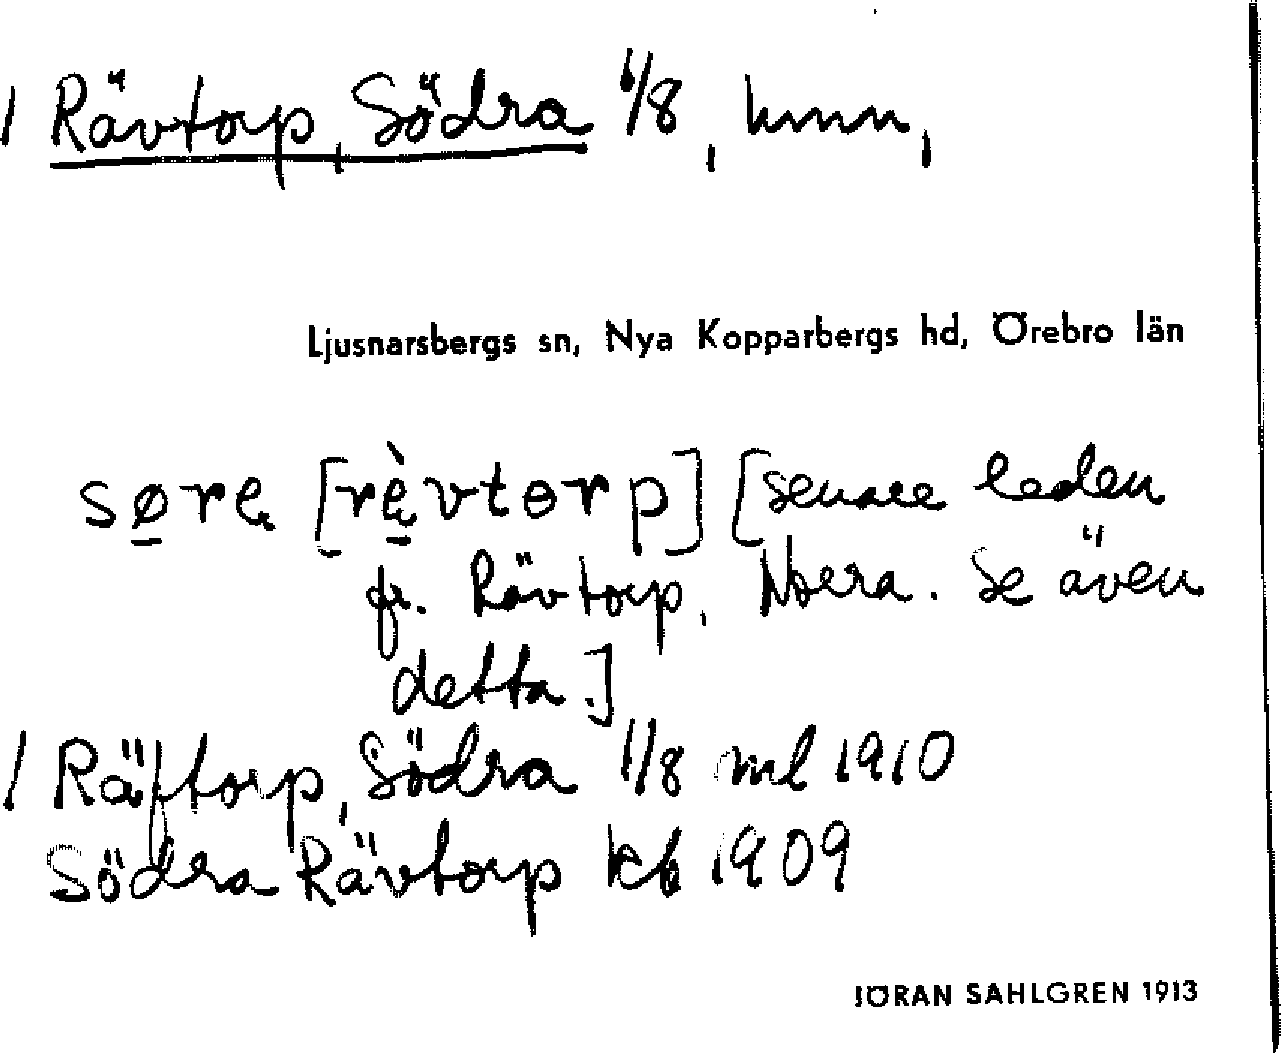 / Rävtorp, Södra 1/8, hmn,
Ljusnarsbergs sn, Nya Kopparbergs hd, Örebro län
søre [rè̱vtorp] [senare leden
fr. Rävtorp, Norra. Se även
detta.]
/ Räftorp, Södra 1/8 ml 1910
Södra Rävtorp kb 1909
JÖRAN SAHLGREN 1913